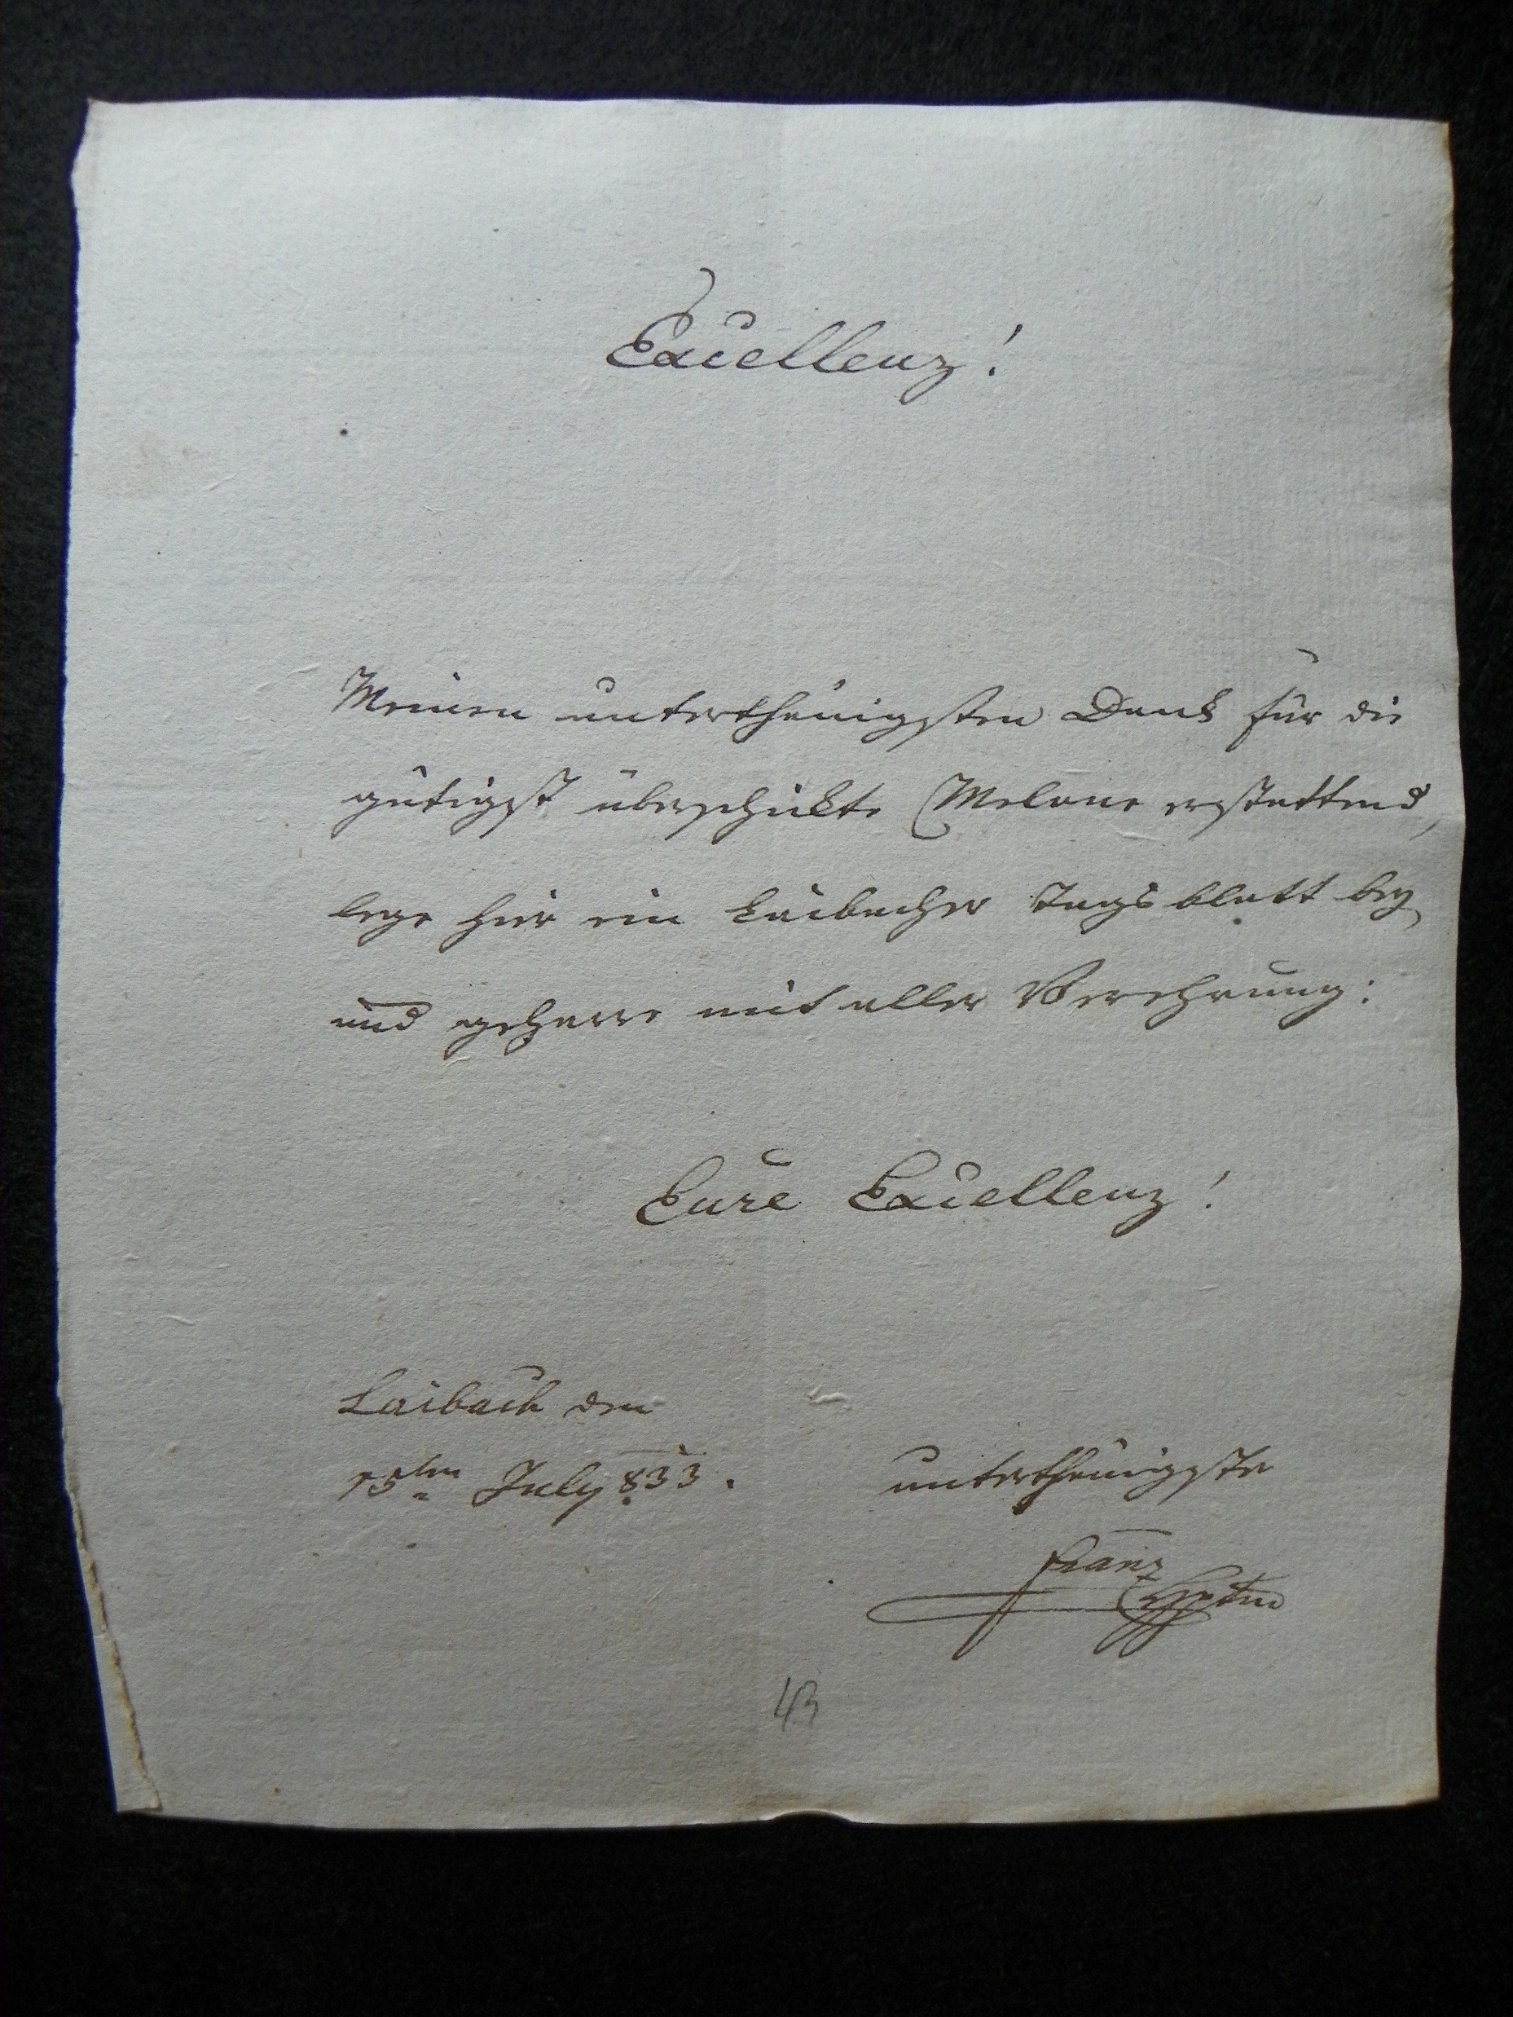 Excellenz!
Meinen unterthänigsten Dank für die
gütigst überschikte Melone erstattend,
lege hier ein Laibacher Tagsblatt bey
und geharre mit aller Verehrung:
Eure Excellenz!
Laibach den
15ten July 833.
unterthänigster
Franz
43